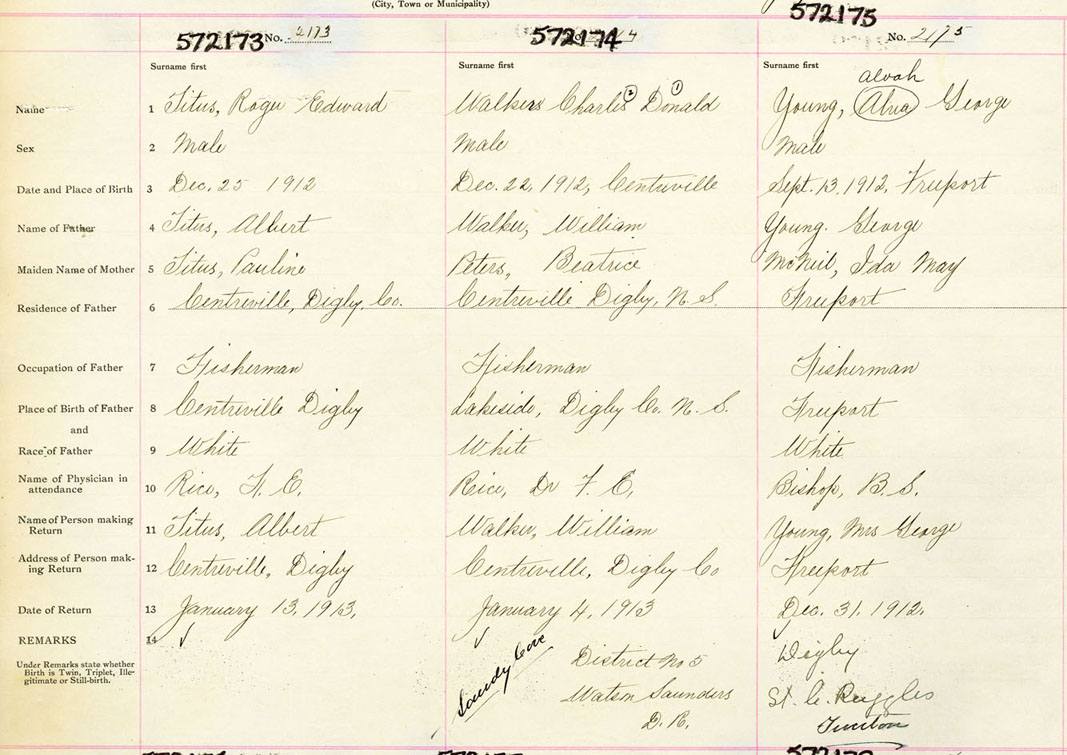 (City, Town or Municipality)
572173 No. 2173
572174
572175
No. 2175
Surname first
Surname first
Surname first
Alvah
Name 1 Titus, Roger Edward
Walker Charles ② Donald ①
Young, Alva George
Sex 2 Male
Male
Male
Date and Place of Birth 3 Dec. 25 1912
Dec. 22, 1912, Centreville
Sept. 13, 1912, Freeport
Name of Father 4 Titus, Albert
Walker, William
Young. George
Maiden Name of Mother 5 Titus, Pauline
Peters, Beatrice
McNeil, Ida May
Residence of Father 6 Centreville, Digby, Co.
Centreville Digby, N. S.
Freeport
Occupation of Father 7 Fisherman
Fisherman
Fisherman
Place of Birth of Father 8 Centreville Digby
Lakeside, Digby Co. N. S.
Freeport
and
Race of Father 9 White
White
White
Name of Physician in
attendance 10 Rice, F. E.
Rice, Dr F. E,
Bishop, B. S.
Name of Person making
Return 11 Titus, Albert
Walker, William
Young, Mrs George
Address of Person mak-
ing Return 12 Centreville, Digby
Centreville, Digby Co
Freeport
Date of Return 13 January 13, 1913,
January 4, 1913
Dec. 31. 1912.
REMARKS 14 ✓
✓
✓
Under Remarks state whether
Birth is Twin, Triplet, Ille-
gitimate or Still-birth.
Sandy Cove
District No 5
Watson Saunders
D. R.
Digby
Ruggles
Tiverton